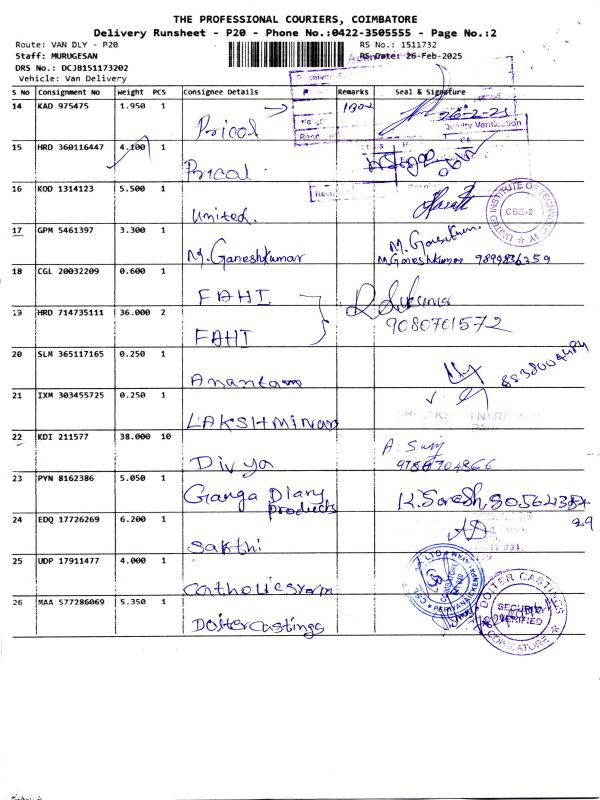 THE PROFESSIONAL COURIERS, COIMBATORE
Delivery Runsheet - P20 - Phone No.:0422-3505555 - Page No.:2
Route: VAN DLY - P20
RS No.: 1511732
Staff: MURUGESAN
RS Date: 26-Feb-2025
DRS No.: DCJB151173202
Vehicle: Van Delivery
S No Consignment No Weight PCS Consignee Details Remarks Seal & Signature
14 KAD 975475 1.950 1 Pricol 1Box 26-2-25
Quality Verification
15 HRD 360116447 4.100 1 Pricol
16 KOD 1314123 5.500 1 United.
UNITED INSTITUTE OF TECHNOLOGY CBE-2
17 GPM 5461397 3.300 1 M. Ganeshkumar
M. Ganeshkumar
18 CGL 20032209 0.600 1 FAHI
9080701572
19 HRD 714735111 36.000 2 FAHI
20 SLM 365117165 0.250 1
21 IXM 303455725 0.250 1 LAKSHMINARA
22 KDI 211577 38.000 10 Divya
23 PYN 8162386 5.050 1 Ganga Diary
products
24 EDQ 17726269 6.200 1 Sakthi
25 UDP 17911477 4.000 1
26 MAA 577286069 5.350 1 Doiter Castings
DOITER CASTINGS
SECURITY
VERIFIED
COIMBATORE